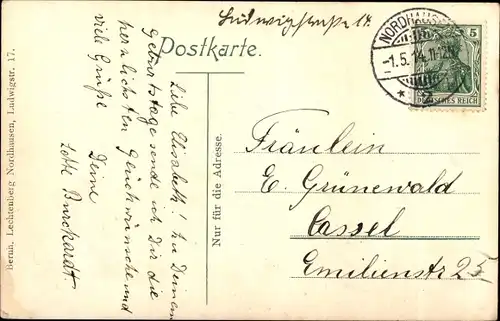 Ludwigstraße 17.
Postkarte.
NORDHAUSEN
-1.5.14. 11-12V
5
DEUTSCHES REICH
Liebe Elisabeth! Zu Deinem
Geburtstage sende ich Dir die
herzlichsten Glückwünsche und
viele Grüße
Deine
Lotte Burckardt.
Bernh. Lechtenberg Nordhausen, Ludwigstr. 17.
Nur für die Adresse.
Fräulein
E. Grünewald
Cassel
Emilienstr 25